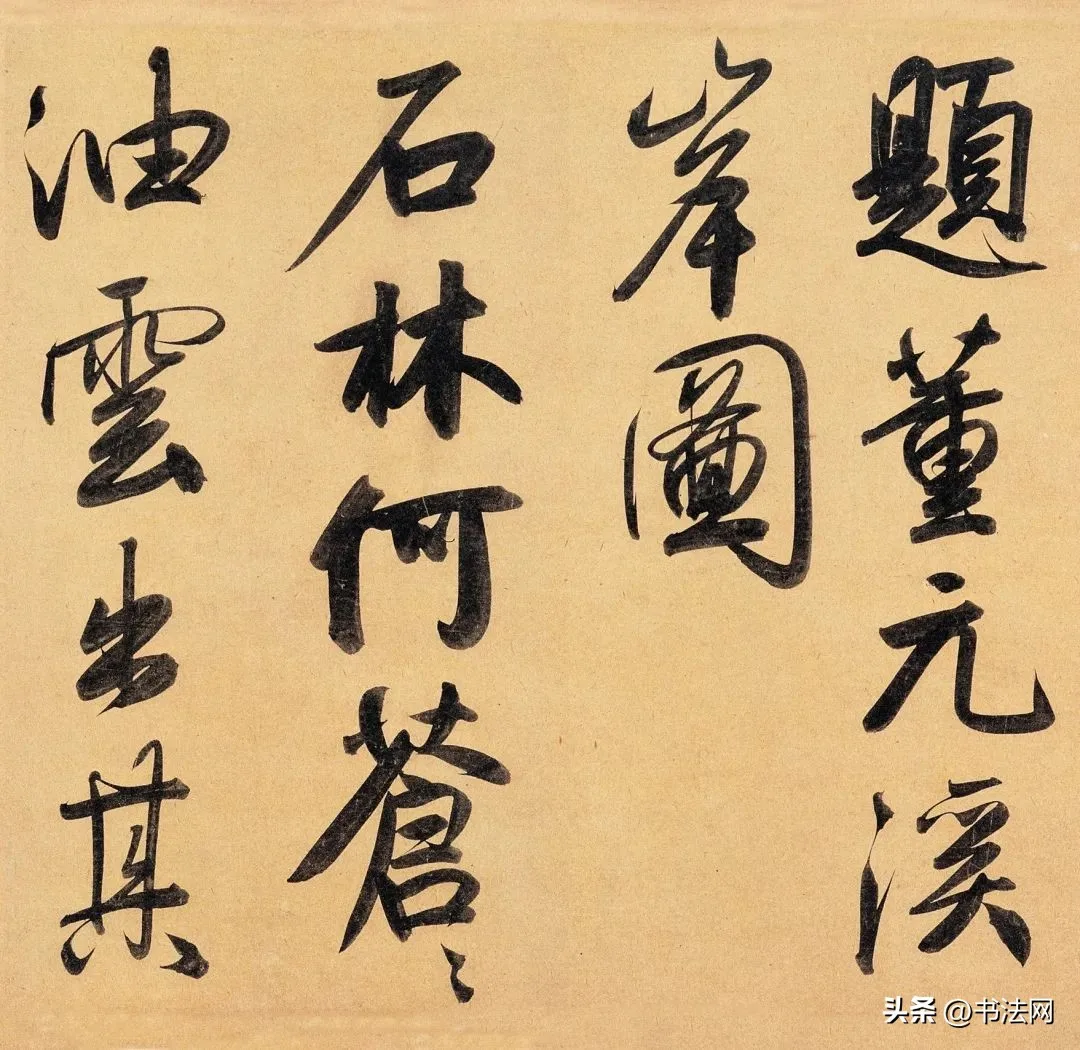 題董元溪
岸圖
石林何蒼〻
油雲出其
头条 @书法网